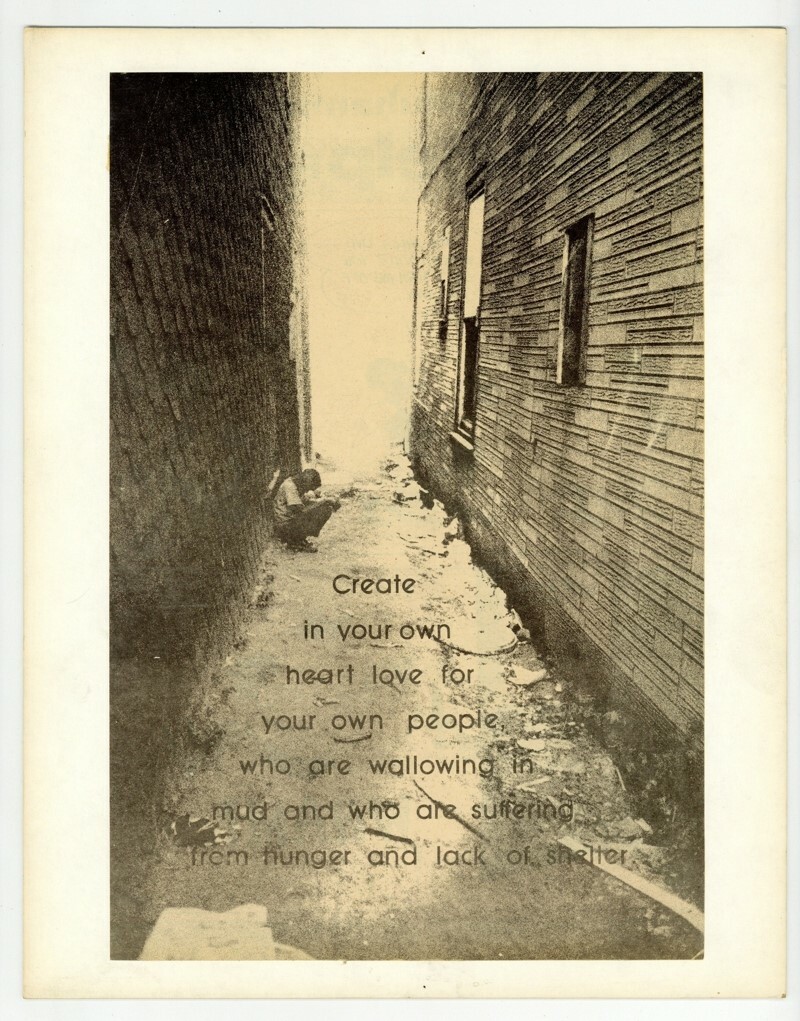 Create
in your own
heart love for
your own people,
who are wallowing in
mud and who are suffering
from hunger and lack of shelter